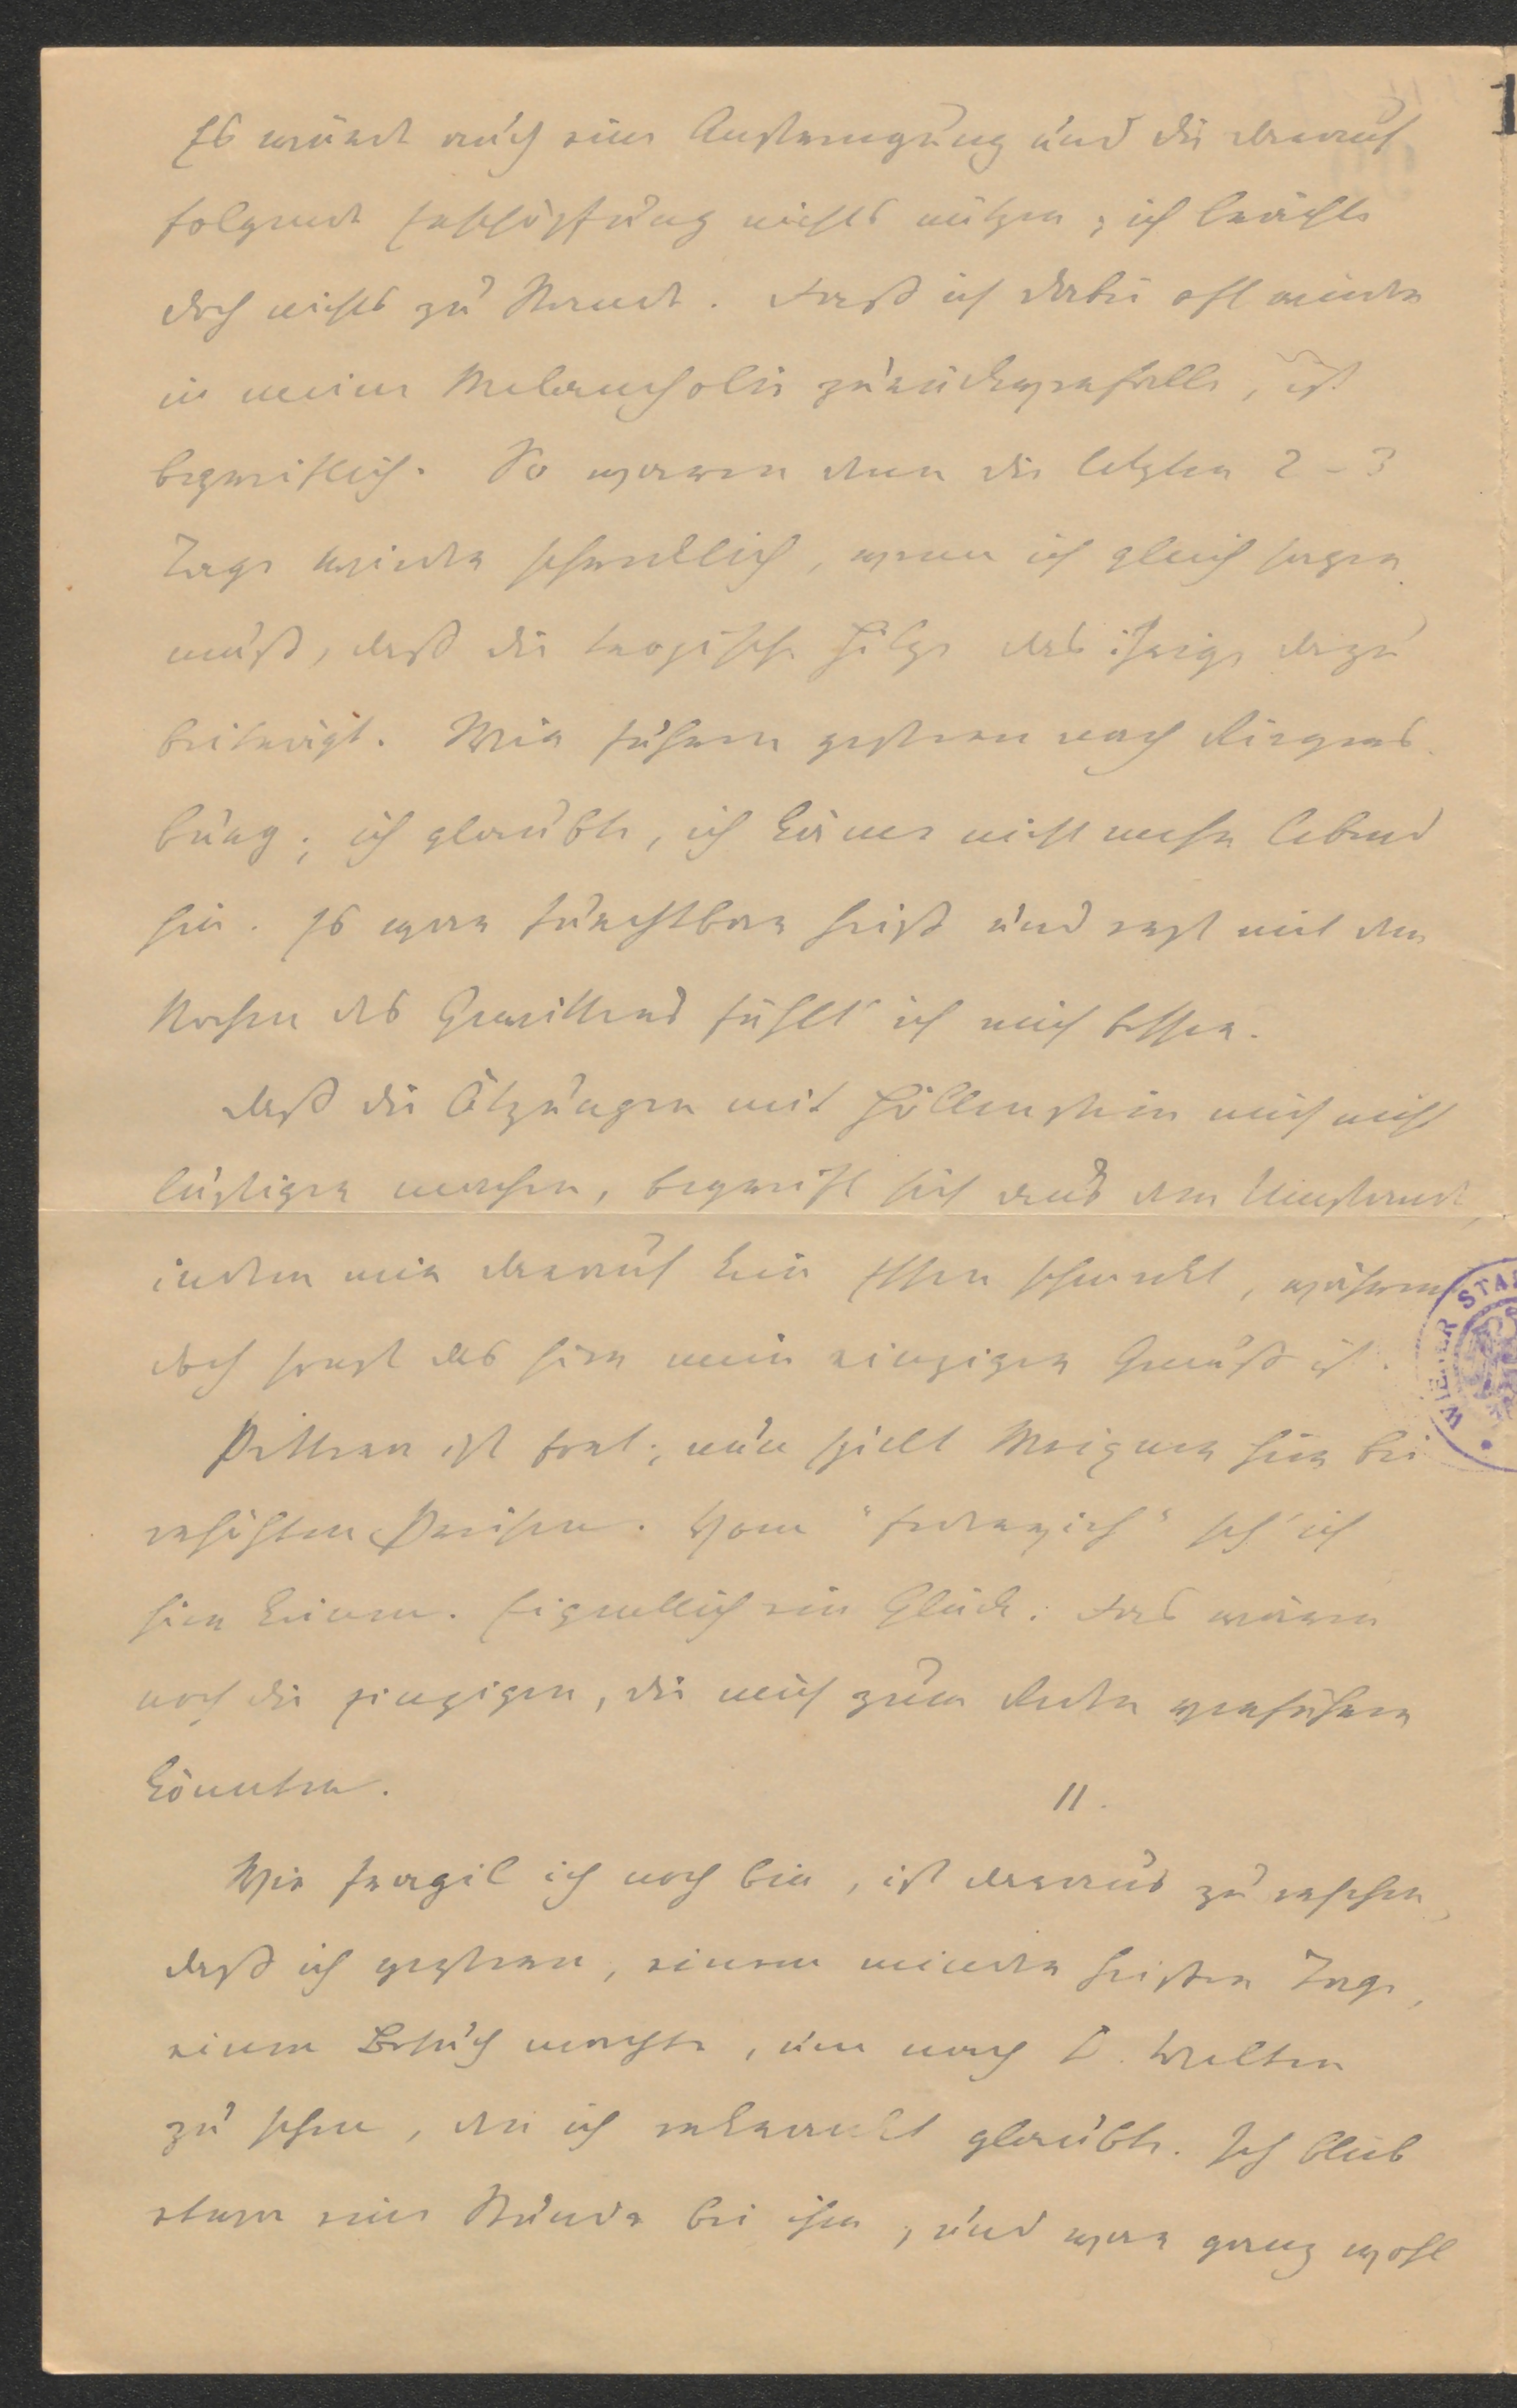 Es würde auch eine Anstrengung und die darauf
folgende Erschöpfung nichts nützen; ich brächte
doch nichts zu Stande. Daß ich dabei oft wieder
in meine Melancholie zurückverfalle, ist
begreiflich. So waren denn die letzten 2-3
Tage wieder schrecklich, wenn ich gleich sagen
muß, daß die tropische Hitze das ihrige dazu
beiträgt. Wir fuhren gestern nach Riegers-
burg; ich glaubte, ich käme nicht mehr lebend
hin. Es war furchtbar heiß und erst mit dem
Nahen des Gewitters fühlt' ich mich besser.
Daß die Ätzungen mit Höllenstein mich nicht
lustiger machen, begreift sich aus dem Umstande,
indem mir darauf kein Essen schmeckt, während
doch sonst das hier mein einziger Genuß ist.
Pittner ist fort; nun spielt Meixner hier bei
erhöhten Preisen. Vom "Federvieh" seh' ich
hier keinen. Eigentlich ein Glück. Das wären
noch die einzigen, die mich zum Reden verführen
könnten.
II.
Wie fragil ich noch bin, ist daraus zu ersehen,
daß ich gestern, einem minder heißen Tage,
einen Besuch machte, um nach D. Walter
zu sehen, den ich erkrankt glaubte. Ich blieb
etwa eine Stunde bei ihm, und war ganz wohl
WIENER STA